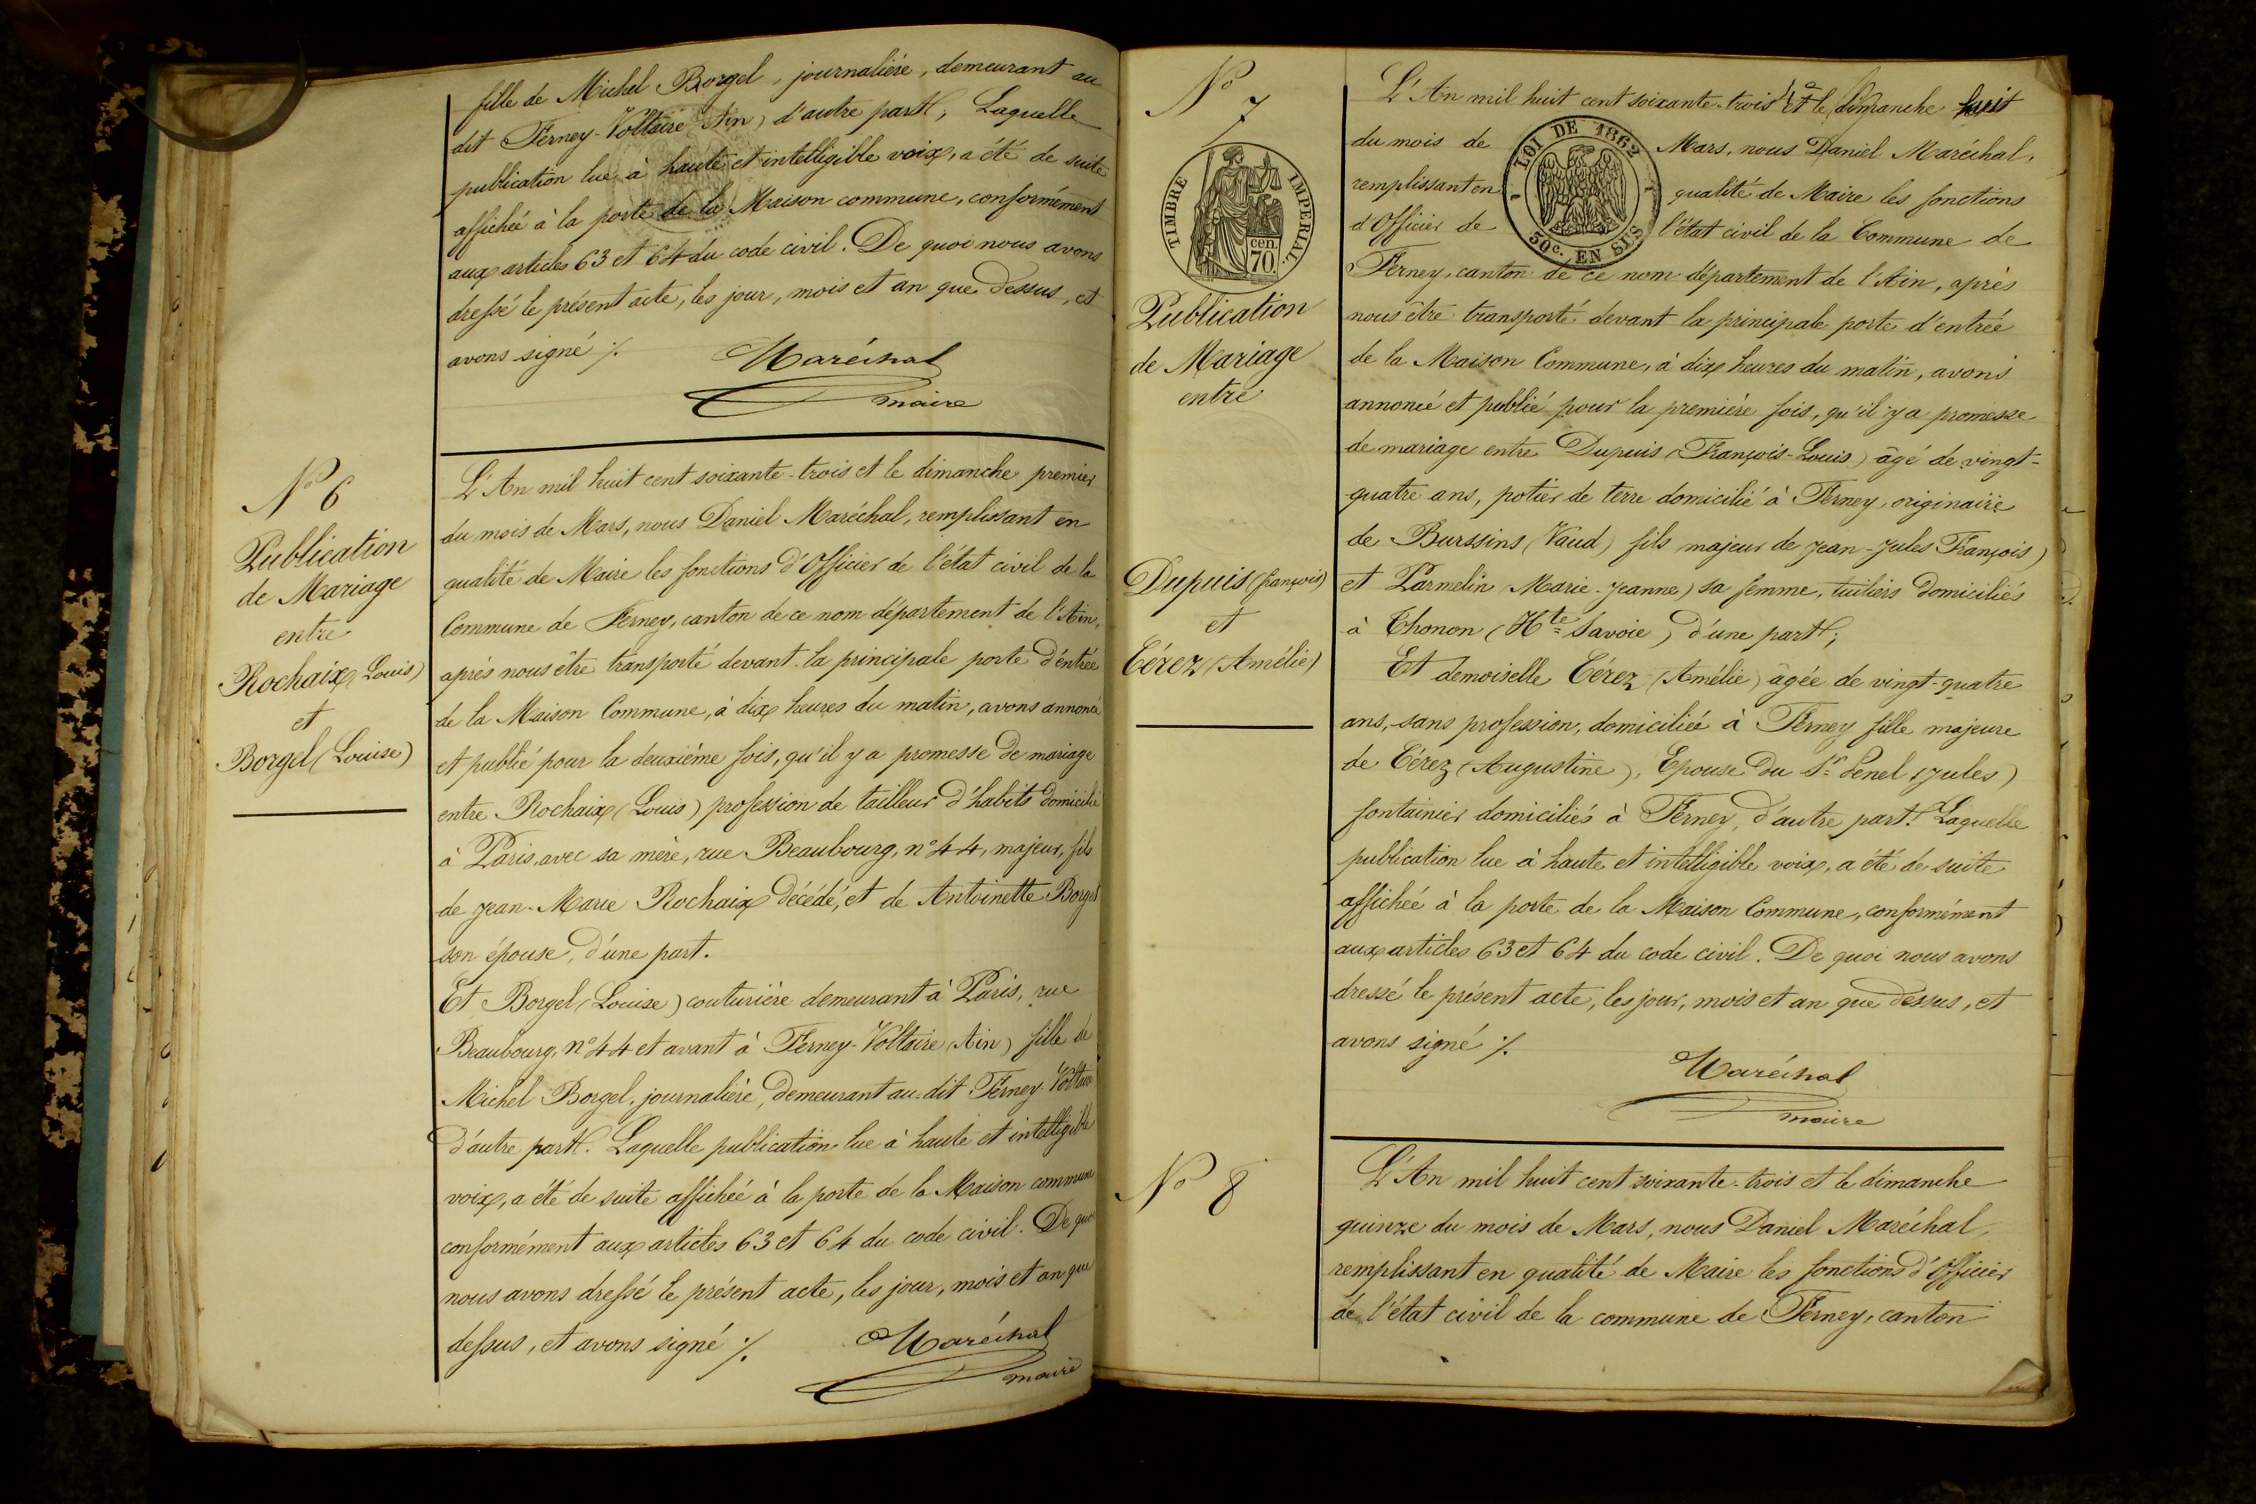 fille de Michel Borgel, journalière, demeurant au
dit Ferney-Voltaire (Ain) d'autre part, Laquelle
publication lue à haute et intelligible voix, a été de suite
affichée à la porte de la Maison commune, conformément
aux articles 63 et 64 du code civil. De quoi nous avons
dressé le présent acte, les jour, mois et an que dessus, et
avons signé ./.
Maréchal
maire
No 6
Publication
de Mariage
entre
Rochaix (Louis)
et
Borgel (Louise)
L'An mil huit cent soixante-trois et le dimanche premier
du mois de Mars, nous Daniel Maréchal, remplissant en
qualité de Maire les fonctions d'Officier de l'état civil de la
Commune de Ferney, canton de ce nom département de l'Ain,
après nous être transporté devant la principale porte d'entrée
de la Maison Commune, à dix heures du matin, avons annoncé
et publié pour la deuxième fois, qu'il y a promesse de mariage
entre Rochaix (Louis) profession de tailleur d'habits domicilié
à Paris, avec sa mère, rue Beaubourg, n° 44, majeur, fils
de Jean-Marie Rochaix décédé, et de Antoinette Borgel
son épouse, d'une part.
Et Borgel (Louise) couturière demeurant à Paris, rue
Beaubourg, n° 44 et avant à Ferney-Voltaire (Ain) fille de
Michel Borgel, journalière, demeurant au-dit Ferney-Voltaire
d'autre part. Laquelle publication lue à haute et intelligible
voix, a été de suite affichée à la porte de la Maison commune
conformément aux articles 63 et 64 du code civil. De quoi
nous avons dressé le présent acte, les jour, mois et an que
dessus, et avons signé ./.
Maréchal
maire
No 7
TIMBRE IMPERIAL.
cen.
70
Publication
de Mariage
entre
Dupuis (françois)
et
Cérez (Amélie)
L'An mil huit cent soixante-trois et le dimanche huit
du mois de Mars, nous Daniel Maréchal,
remplissant en qualité de Maire les fonctions
d'Officier de l'état civil de la Commune de
LOI DE 1862
50c. EN SUS
Ferney, canton de ce nom département de l'Ain, après
nous être transporté devant la principale porte d'entrée
de la Maison Commune, à dix heures du matin, avons
annoncé et publié pour la première fois, qu'il y a promesse
de mariage entre Dupuis (François-Louis) âgé de vingt-
quatre ans, potier de terre domicilié à Ferney, originaire
de Burssins (Vaud) fils majeur de Jean-Jules François)
et Parmelin (Marie-Jeanne) sa femme, tuiliers domiciliés
à Thonon (Hte Savoie) d'une part;
Et demoiselle Cérez (Amélie) âgée de vingt-quatre
ans, sans profession, domiciliée à Ferney fille majeure
de Cérez (Augustine), Epouse du Sr Penel (Jules)
fontainier domiciliés à Ferney, d'autre part. Laquelle
publication lue à haute et intelligible voix, a été de suite
affichée à la porte de la Maison Commune, conformément
aux articles 63 et 64 du code civil. De quoi nous avons
dressé le présent acte, les jour, mois et an que dessus, et
avons signé ./.
Maréchal
maire
No 8
L'An mil huit cent soixante-trois et le dimanche
quinze du mois de Mars, nous Daniel Maréchal,
remplissant en qualité de Maire les fonctions d'Officier
de l'état civil de la commune de Ferney, canton